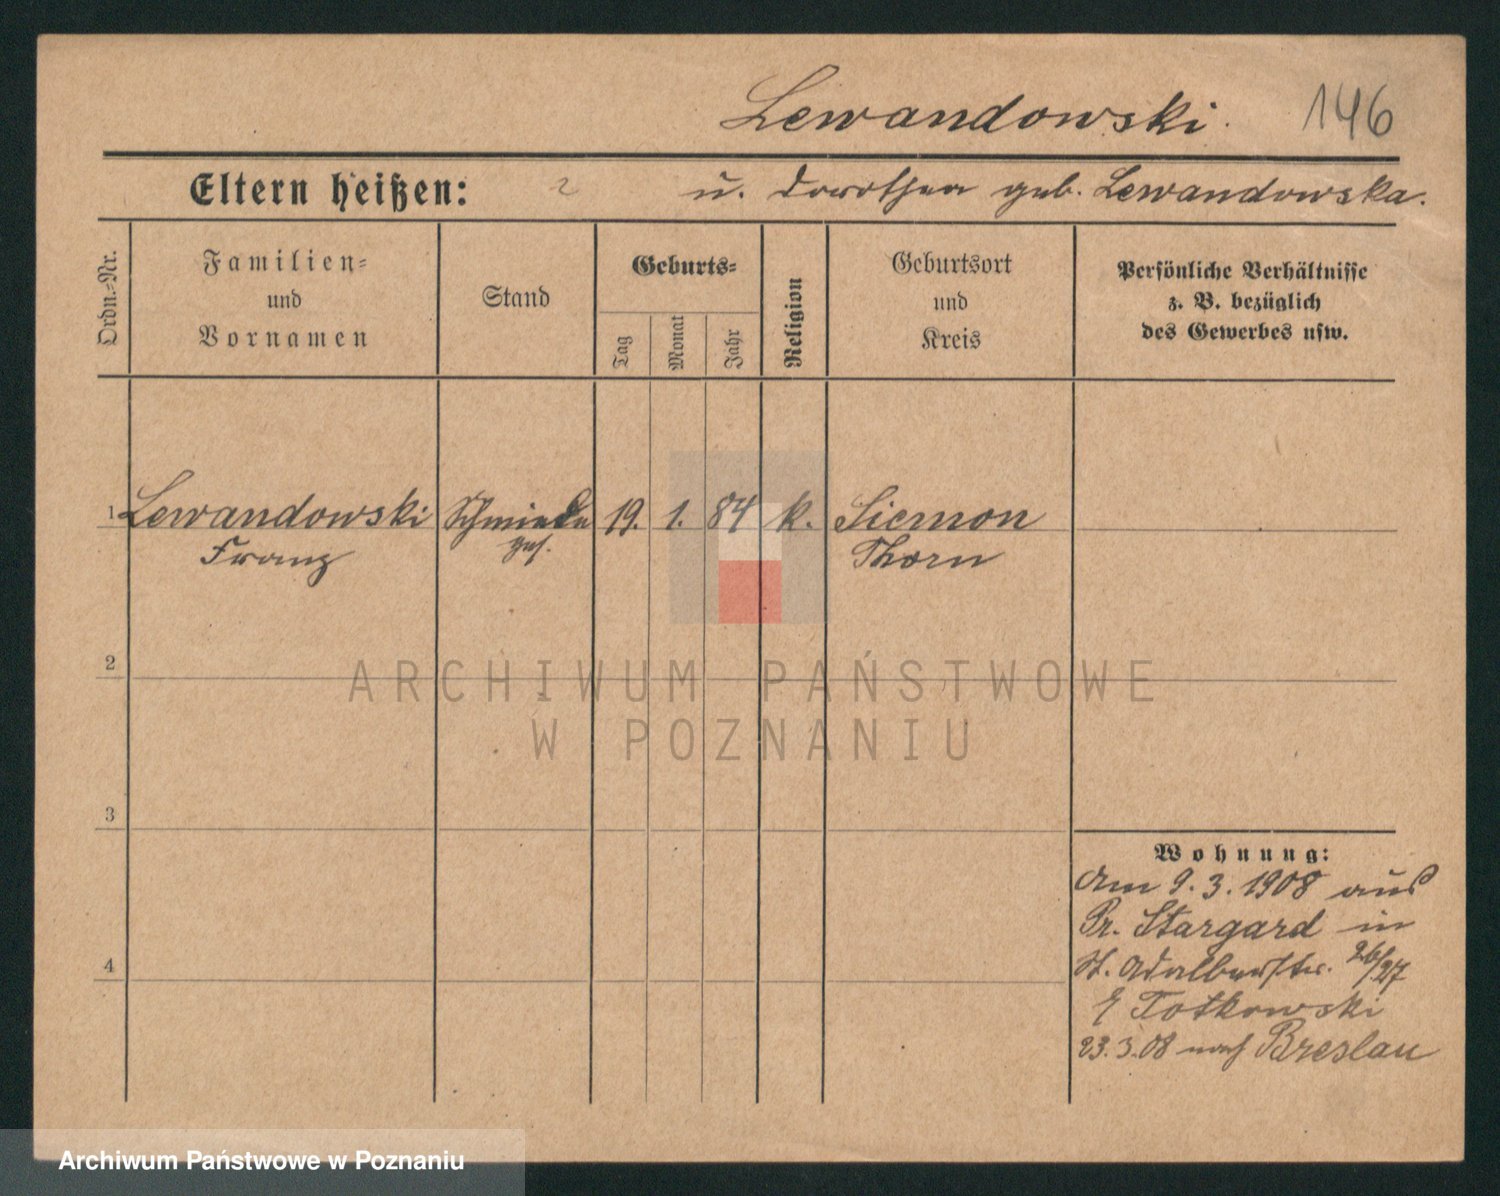 Lewandowski. 146
Eltern heißen: u. Dorothea geb. Lewandowska.
Ordn.-Nr.
Familien-
und
Vornamen
Stand
Geburts-
Tag
Monat
Jahr
Religion
Geburtsort
und
Kreis
Persönliche Verhältnisse
z. B. bezüglich
des Gewerbes usw.
1 Lewandowski Schmiede 19. 1. 84 k. Siemon
Franz ges. Thorn
2
ARCHIWUM PAŃSTWOWE
W POZNANIU
3
Wohnung:
Am 9.3.1908 aus
Pr. Stargard in
St. Adalbertstr. 26/27
4
Totkowski
23.3.08 nach Breslau
Archiwum Państwowe w Poznaniu